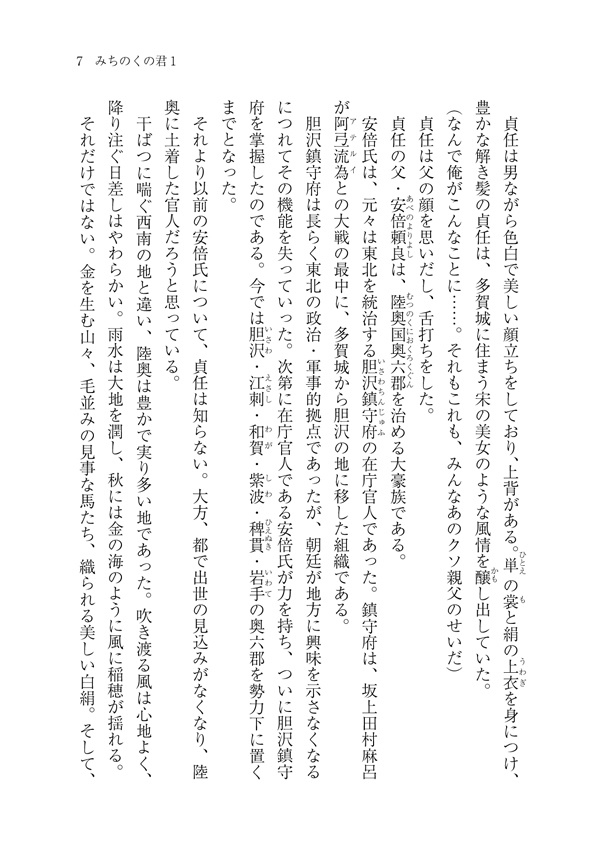 7　みちのくの君1
　貞任は男ながら色白で美しい顔立ちをしており、上背がある。単の裳と絹の上衣を身につけ、
豊かな解き髪の貞任は、多賀城に住まう宋の美女のような風情を醸し出していた。
（なんで俺がこんなことに……。それもこれも、みんなあのクソ親父のせいだ）
　貞任は父の顔を思いだし、舌打ちをした。
　貞任の父・安倍頼良は、陸奥国奥六郡を治める大豪族である。
　安倍氏は、元々は東北を統治する胆沢鎮守府の在庁官人であった。鎮守府は、坂上田村麻呂
が阿弖流為との大戦の最中に、多賀城から胆沢の地に移した組織である。
　胆沢鎮守府は長らく東北の政治・軍事的拠点であったが、朝廷が地方に興味を示さなくなる
につれてその機能を失っていった。次第に在庁官人である安倍氏が力を持ち、ついに胆沢鎮守
府を掌握したのである。今では胆沢・江刺・和賀・紫波・稗貫・岩手の奥六郡を勢力下に置く
までとなった。
　それより以前の安倍氏について、貞任は知らない。大方、都で出世の見込みがなくなり、陸
奥に土着した官人だろうと思っている。
　干ばつに喘ぐ西南の地と違い、陸奥は豊かで実り多い地であった。吹き渡る風は心地よく、
降り注ぐ日差しはやわらかい。雨水は大地を潤し、秋には金の海のように風に稲穂が揺れる。
　それだけではない。金を生む山々、毛並みの見事な馬たち、織られる美しい白絹。そして、